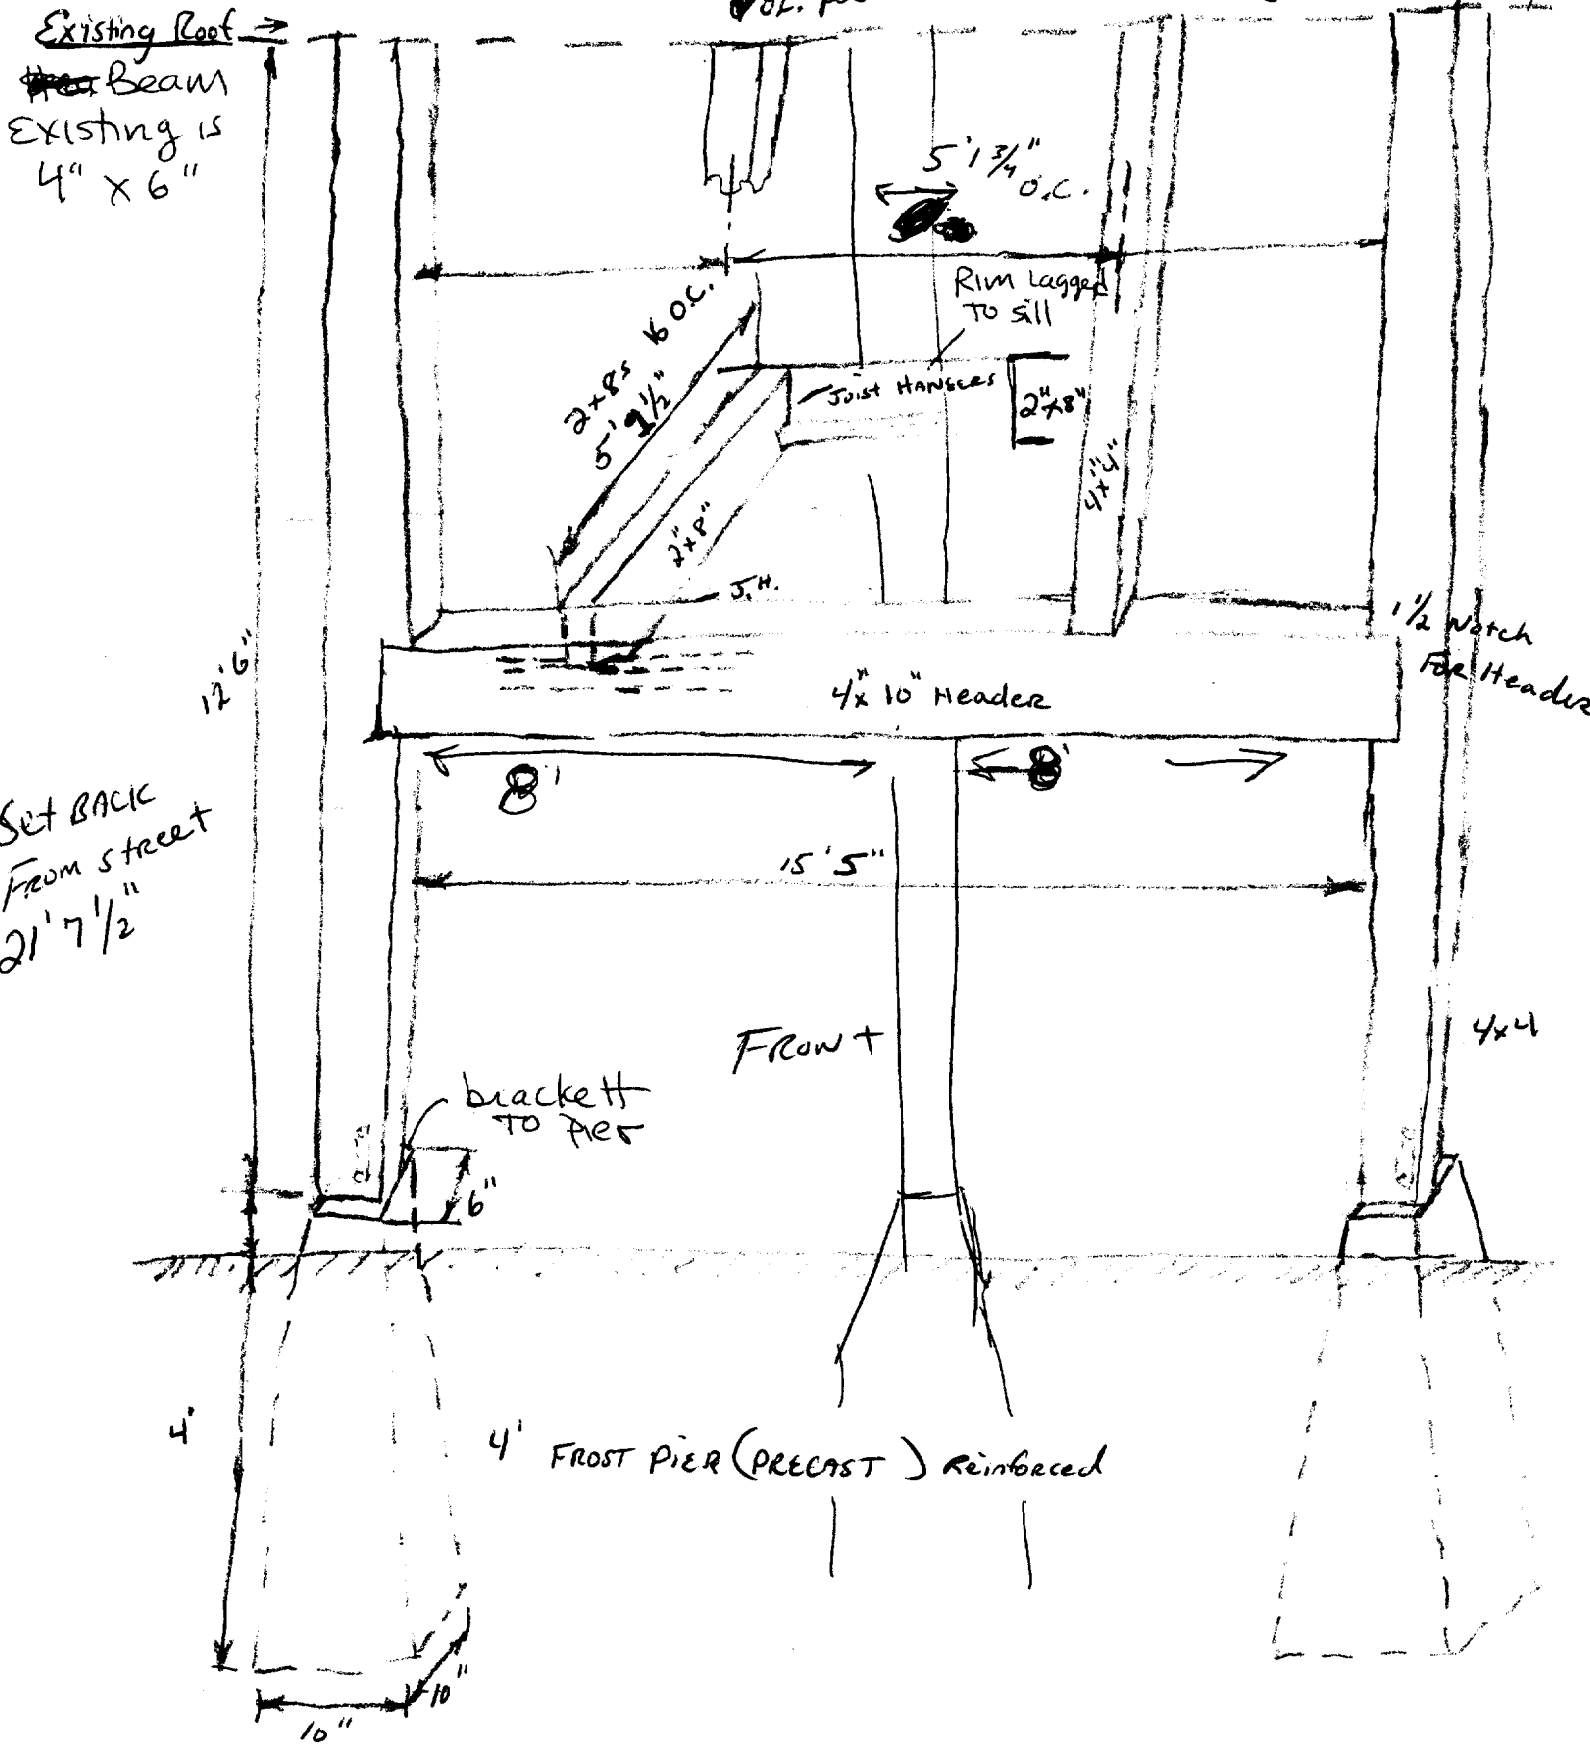 Existing Roof →
Beam
Existing is
4" x 6"
5' 1 3/4"
O.C.
Rim Lagged
TO Sill
2x8s 16 O.C.
5' 9 1/2"
Joist HANGERS
2"x8"
4"x4"
2"x8"
J.H.
1 1/2 Notch
FOR Header
12' 6"
4x 10" Header
8'
8'
Set BACK
FROM street
21' 7 1/2"
15' 5"
FRONT
4x4
brackett
TO Pier
6"
4'
4' FROST PIER (PRECAST) Reinforced
10"
10"